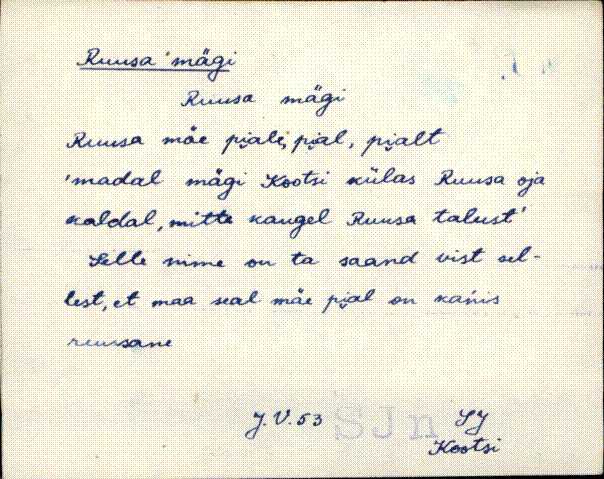 Ruusa 'mägi
Ruusa mägi
Ruusa mäe pi̮ale, pi̮al, pi̮alt
'madal mägi Kootsi külas Ruusa oja
kaldal, mitte kaugel Ruusa talust'
Selle nime on ta saand vist sel-
lest, et maa seal mäe pi̮al on kańis
ruusane
J. V. 53 SJn SJ
Kootsi